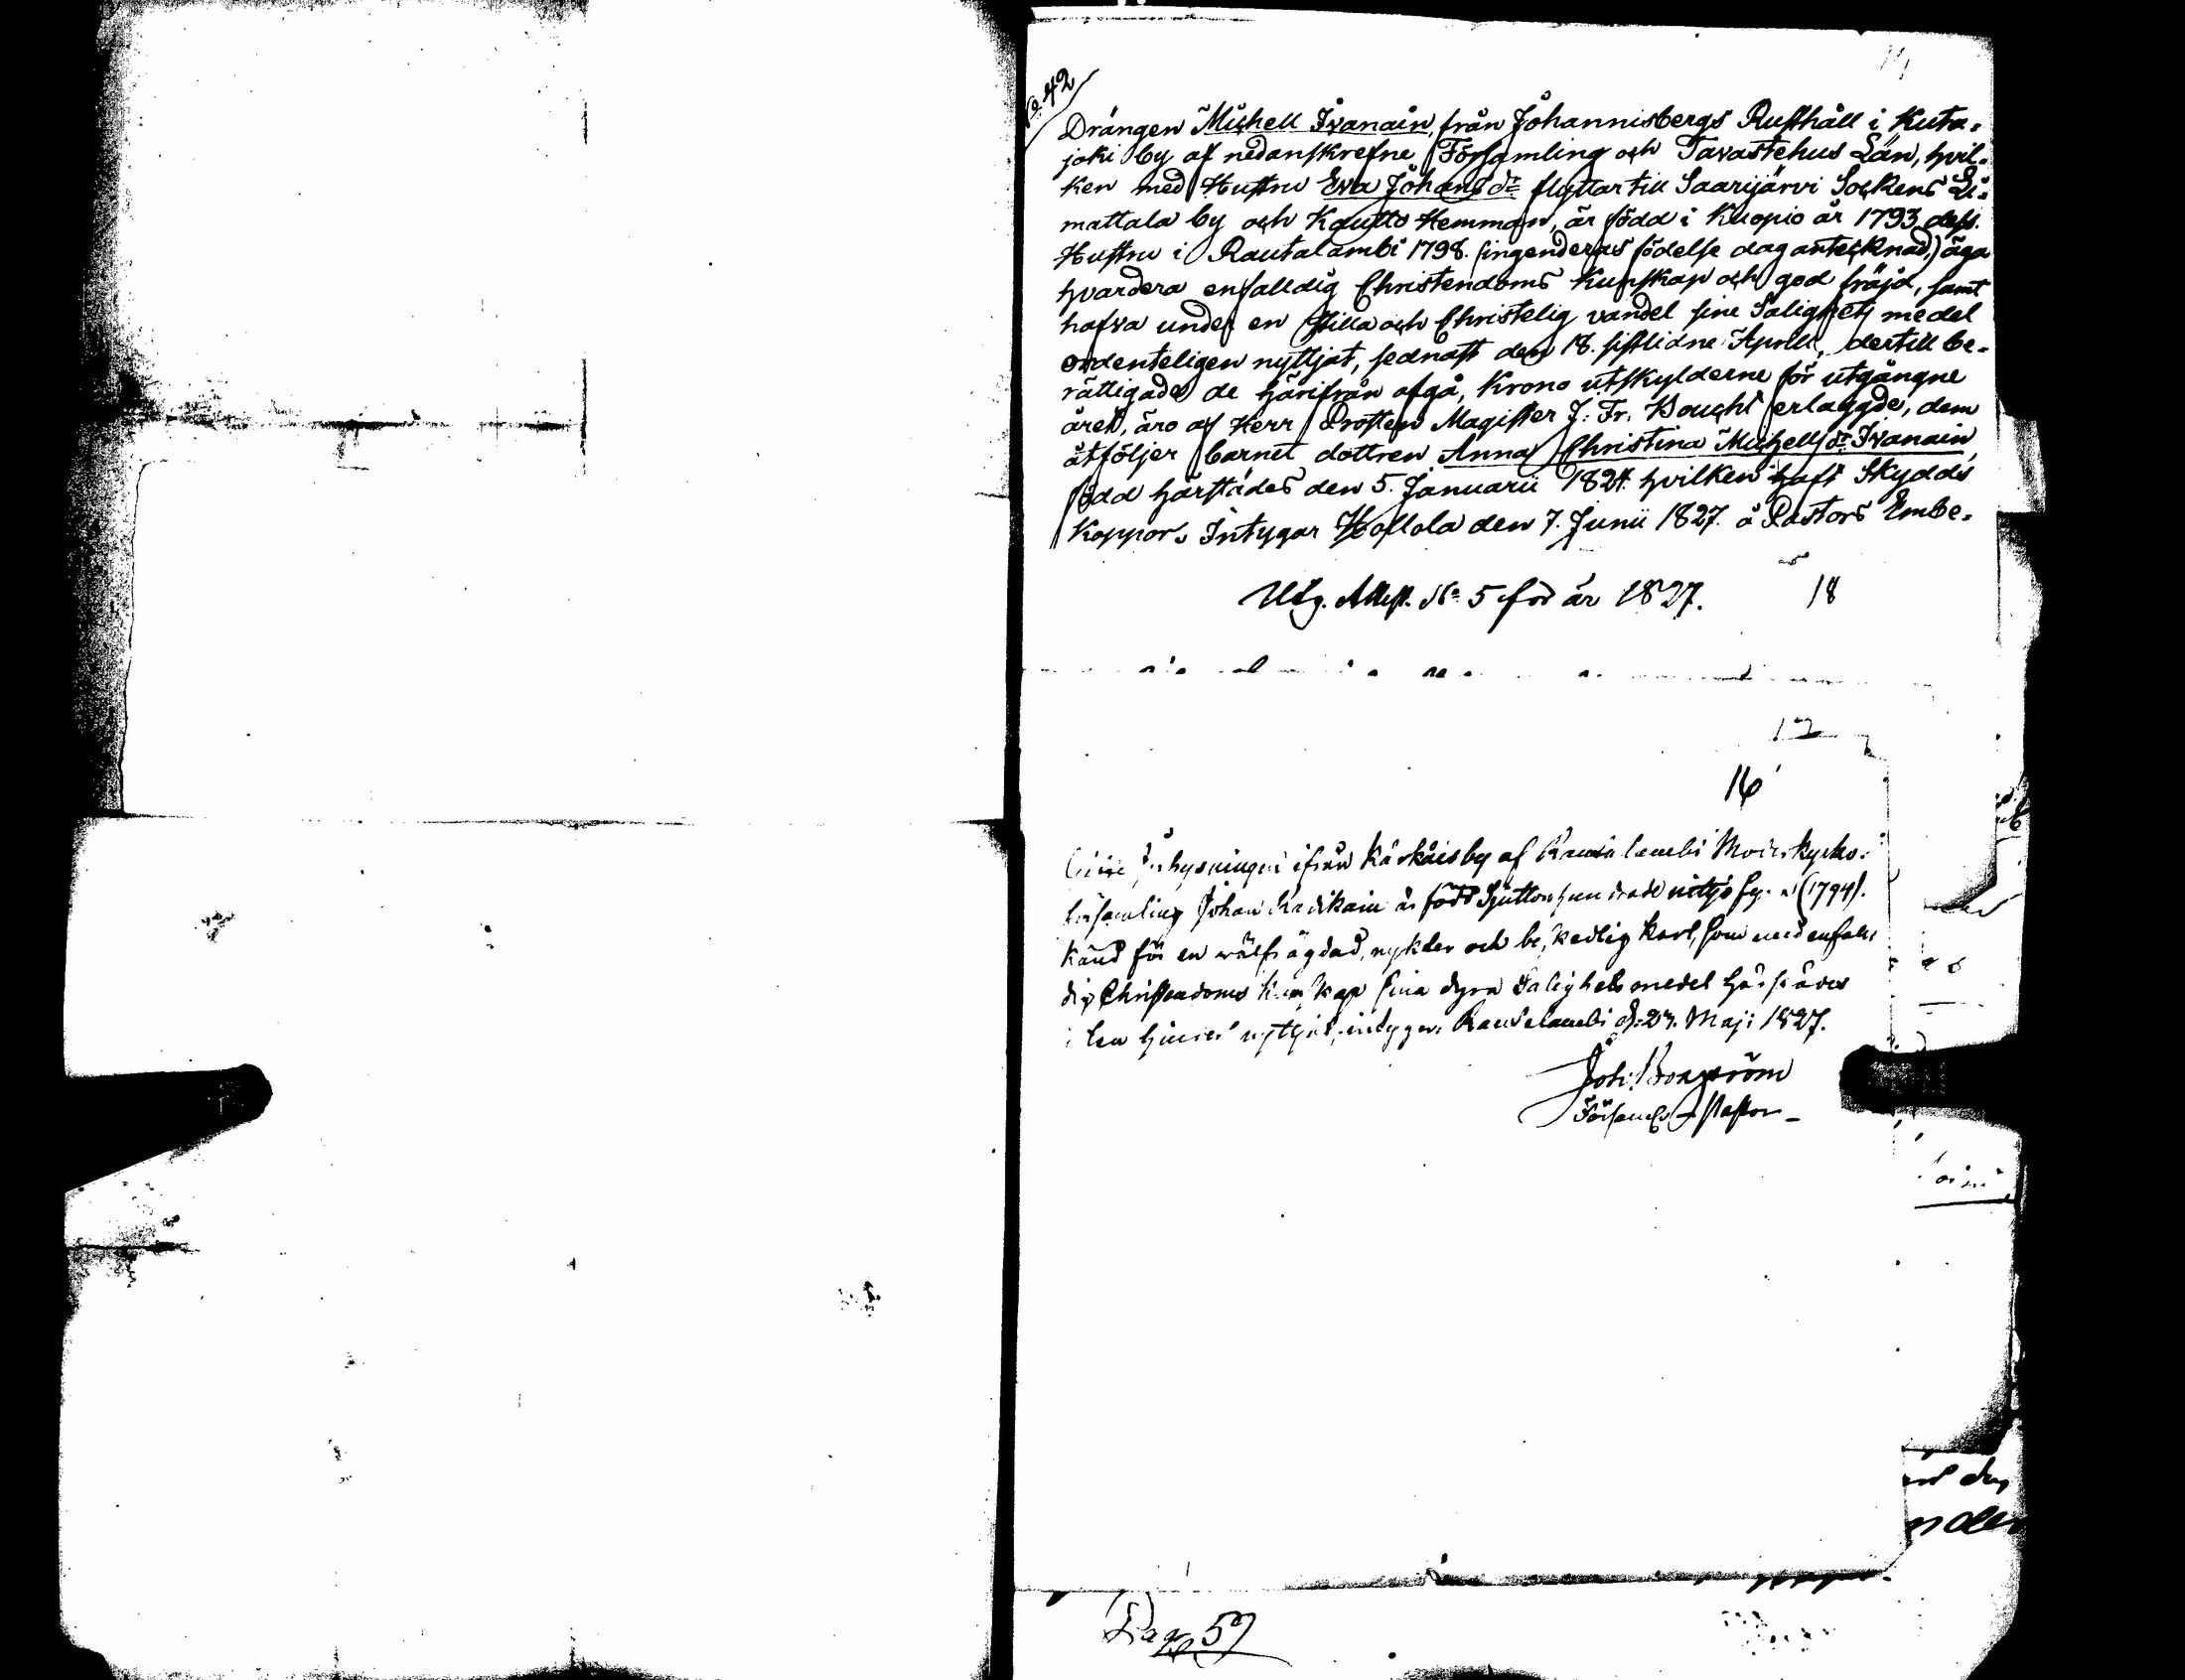 No 42
Drängen Michell Ivanain, från Johannisbergs Rusthåll i Kuta-
joki by af nedanskrefne Församling och Tavastehus Län, hvil-
ken med Hustru Eva Johansdr flyttar till Saarijärvi Sockens Li-
mattala by och Kautto Hemman, är född i Kuopio år 1793, dess
Hustru i Rautalambi 1798. (ingenderas födelse dag antecknad,) äga
hvardera enfalldig Christendoms kunskap och god fräjd, samt
hafva under en stilla och Christelig vandel sine Salighets medel
ordenteligen nyttjat, sednast den 18. sistlidne Aprill, dertill be-
rättigade de härifrån afgå, Krono utskylderne för utgångne
året, äro af Herr Prosten Magister J. Fr. Boucht erlaggde, dem
åtföljer barnet dottren Anna Christina Michellsdr Ivanain,
född härstädes den 5. Januarii 1824. hvilken haft Skydds
Koppor. Intygar Hollola den 7. Junii 1827. å Pastors Embe-
Utg. Attest. No 5 för år 1827.
18
12
16
Inhysningen ifrån Kärkäis by af Rautalambi Moderkyrko-
församling Johan är född Sjuttonhundrade nittjo fyra (1794).
känd för en välfrägdad, nykter och beskedlig karl, som med enfall-
dig Christendoms kunskap sina dyra Salighets medel härstädes
nyttjat, intygar Rautalambi d. 23. Maji 1827.
Joh. Borgström
Församl. Pastor
Pag. 57